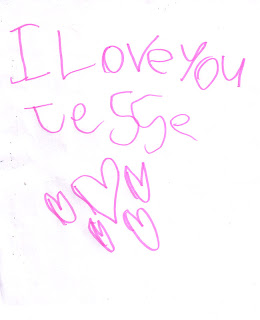 I Love you
Jessje